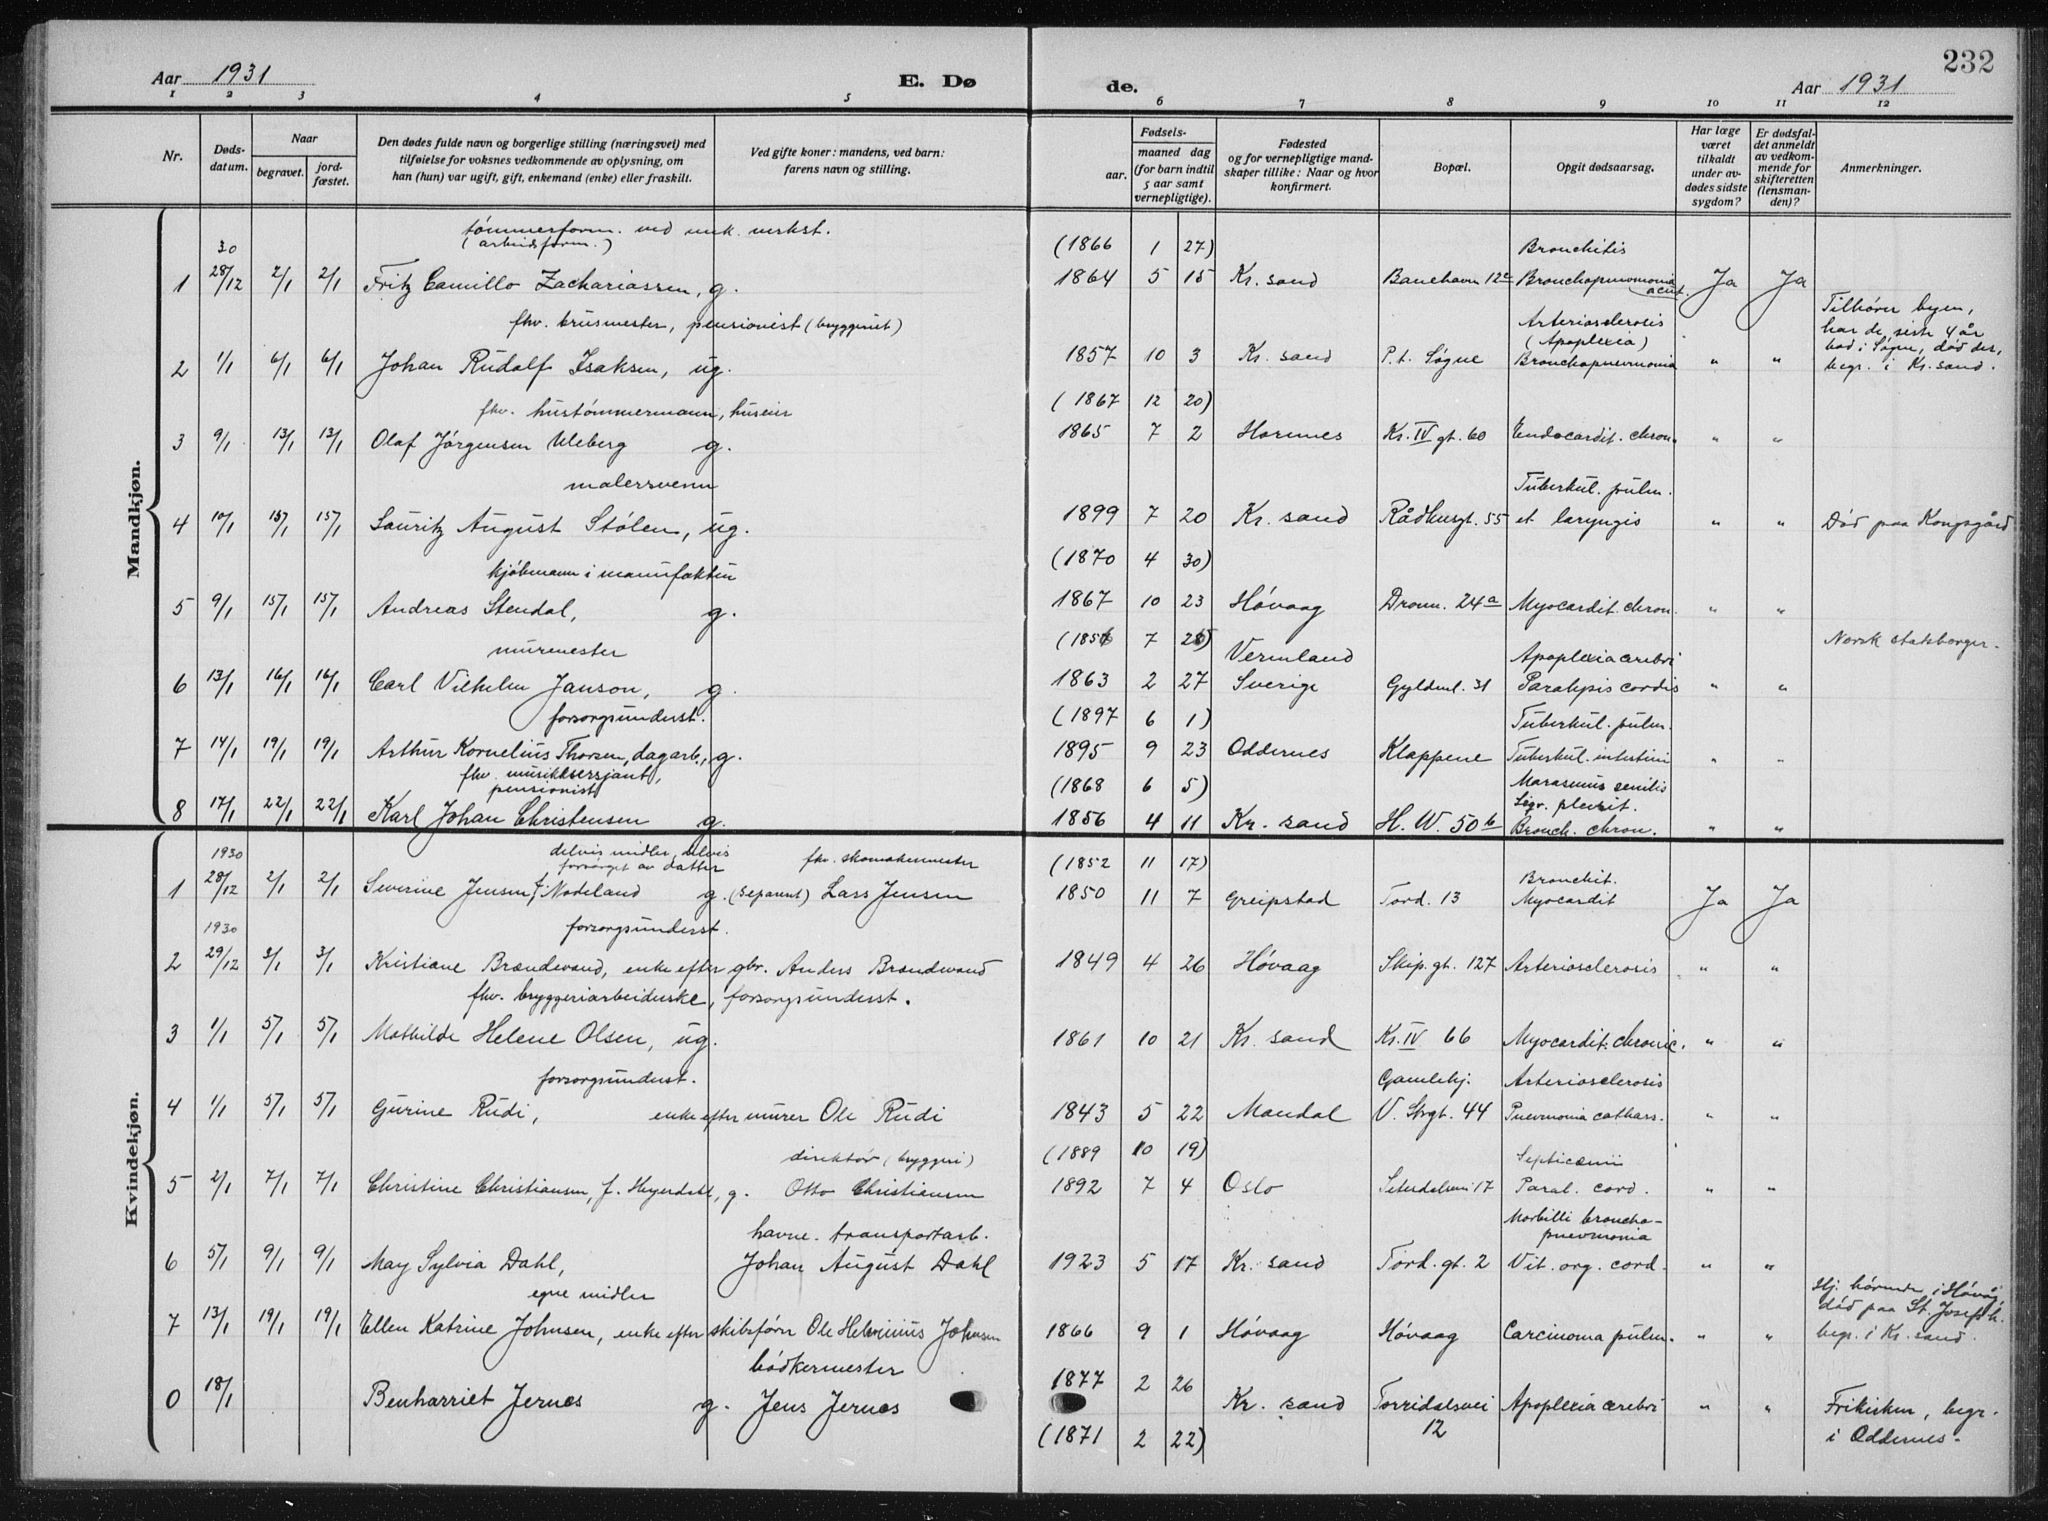 232
Aar 1931
E. Dø
de.
Aar 1931
1 2 3 4 5 6 7 8 9 10 11 12
Nr.
Døds-
datum.
Naar
begravet.
jord-
fæstet.
Den dødes fulde navn og borgerlige stilling (næringsvei) med
tilføielse for voksnes vedkommende av oplysning, om
han (hun) var ugift, gift, enkemand (enke) eller fraskilt.
Ved gifte koner: mandens, ved barn:
farens navn og stilling.
Fødsels-
aar.
maaned dag
(for barn indtil
5 aar samt
vernepligtige).
Fødested
og for vernepligtige mand-
skaper tillike: Naar og hvor
konfirmert.
Bopæl.
Opgit dødsaarsag.
Har læge
været
tilkaldt
under av-
dødes sidste
sygdom?
Er dødsfal-
det anmeldt
av vedkom-
mende for
skifteretten
(lensman-
den)?
Anmerkninger.
Mandkjøn.
tømmerform. ved mek. verkst.
30 (arbeidsform.) (1866 1 27) Bronchitis
1 28/12 2/1 2/1 Fritz Camillo Zachariassen, g. 1864 5 15 Kr. sand Banehavn 12a Bronchopneumonia acut. Ja Ja
fhv. brusmester, pensionist (bryggeriet) Arteriosclerosis Tilhører byen,
(Apoplexia) har de siste 4 år
2 1/1 6/1 6/1 Johan Rudolf Isaksen, ug. 1857 10 3 Kr. sand P.t. Søgne Bronchopneumonia " " bod i Søgne, død der,
begr. i Kr. sand.
fhv. hustømmermann, huseier (1867 12 20)
3 9/1 13/1 13/1 Olaf Jørgensen Uleberg g. 1865 7 2 Hornnes Kr. IV gt. 60 Endocardit. chron. " "
malersvenn Tuberkul. pulm.
4 10/1 15/1 15/1 Lauritz August Stølen, ug. 1899 7 20 Kr. sand Rådhusgt. 55 et laryngis " " Død paa Kongsgård
kjøbmann i manufaktur (1870 4 30)
5 9/1 15/1 15/1 Andreas Stendal, g. 1867 10 23 Høvaag Dronn. 24a Myocardit. chron. " "
murmester 7 Vermland Apoplexia cerebri Norsk statsborger.
6 13/1 16/1 16/1 Carl Vilhelm Janson, g. 1863 2 27 Sverige Gyldenl. 31 Paralysis cordis " "
forsorgsunderst. (1897 6 1) Tuberkul. pulm.
7 14/1 19/1 19/1 Arthur Kornelius Thorsen, dagarb., g. 1895 9 23 Oddernes Klappene Tuberkul. intestini " "
fhv. musikksersjant, pensionist (1868 6 5) Marasmus senilis
plevrit.
8 17/1 22/1 22/1 Karl Johan Christensen g. 1856 4 11 Kr. sand H. W. 50b Bronch. chron. " "
Kvindekjøn.
1930 delvis midler, delvis
forsørget av datter fhv. skomakermester (1852 11 17) Bronchit.
1 28/12 2/1 2/1 Severine Jensen f. Nodeland g. (separert) Lars Jensen 1850 11 7 Greipstad Tord. 13 Myocardit Ja Ja
1930 forsorgsunderst.
2 29/12 3/1 3/1 Kristiane Brændevand, enke efter gbr. Anders Brændevand 1849 4 26 Høvaag Skip. gt. 127 Arteriosclerosis " "
fhv. bryggeriarbeiderske, forsorgsunderst.
3 1/1 5/1 5/1 Mathilde Helene Olsen, ug. 1861 10 21 Kr. sand Kr. IV 66 Myocardit. chronic. " "
forsorgsunderst. Gamlehj. Arteriosclerosis
4 1/1 5/1 5/1 Gurine Rudi, enke efter murer Ole Rudi 1843 5 22 Mandal V. Strgt. 44 Pneumonia cathars. " "
direktør (bryggeri) (1889 10 19) Septicæmi
5 2/1 7/1 7/1 Christine Christiansen, f. Heyerdahl, g. Otto Christiansen 1892 7 4 Oslo Seterdalsvei 17 Paral. cord. " "
havne-transportarb. Morbilli broncho-
pneumonia
6 5/1 9/1 9/1 May Sylvia Dahl, Johan August Dahl 1923 5 17 Kr. sand Tord. gt. 2 Vit. org. cord. " "
egne midler Hj. hørende i Høvåg
død paa St. Josefsh.
7 13/1 19/1 19/1 Ellen Katrine Johnsen, enke efter skibsførn Ole Helvinius Johnsen 1866 9 1 Høvaag Høvaag Carcinoma pulm. " " begr. i Kr. sand.
bødkermester
0 18/1 Benharriet Jernes g. Jens Jernes 1877 2 26 Kr. sand Torridalsvei 12 Apoplexia cerebri " " Frikirken, begr.
i Oddernes.
(1871 2 22)